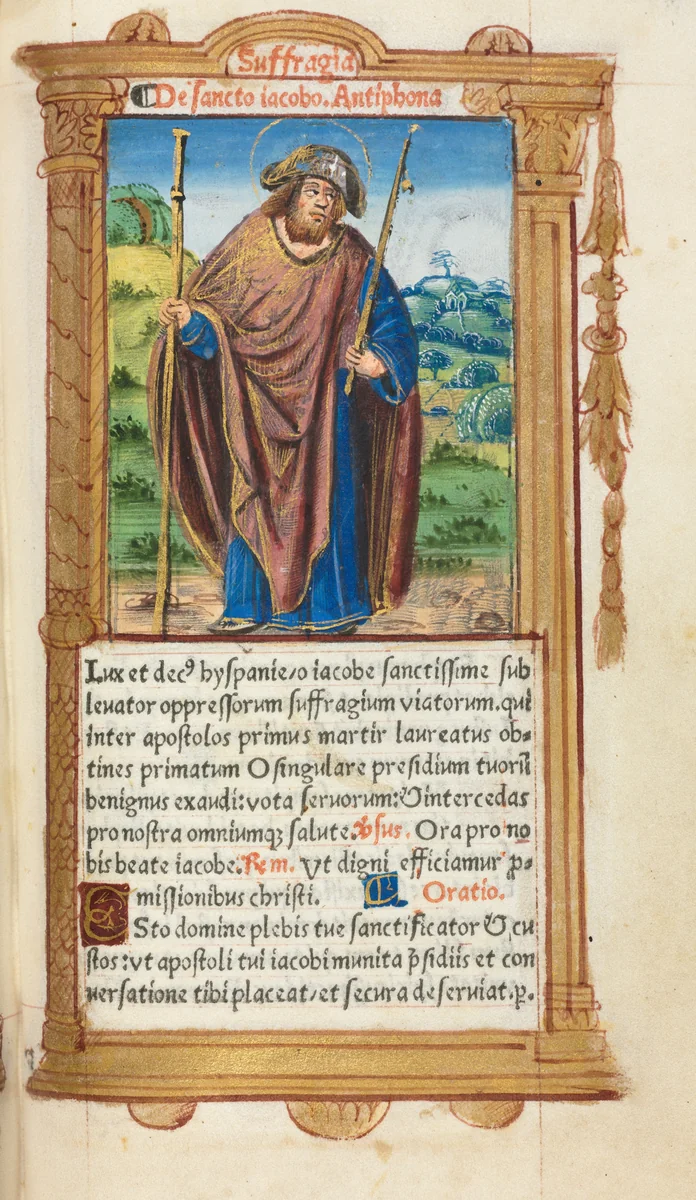 Suffragia
De sancto iacobo. Antiphona
Lux et decꝰ hyspanie/o iacobe sanctissime sub
leuator oppressorum suffragium viatorum. qui
inter apostolos primus martir laureatus ob-
tines primatum O singulare presidium tuorū
benignus exaudi: vota seruorum: & intercedas
pro nostra omniumqꝫ salute. v̄sus. Ora pro no
bis beate iacobe. Rem. vt digni efficiamur ꝓ-
missionibus christi. Oratio.
ESto domine plebis tue sanctificator &, cu
stos: vt apostoli tui iacobi munita p̄sidiis et con
uersatione tibi placeat/et secura deseruiat. p.